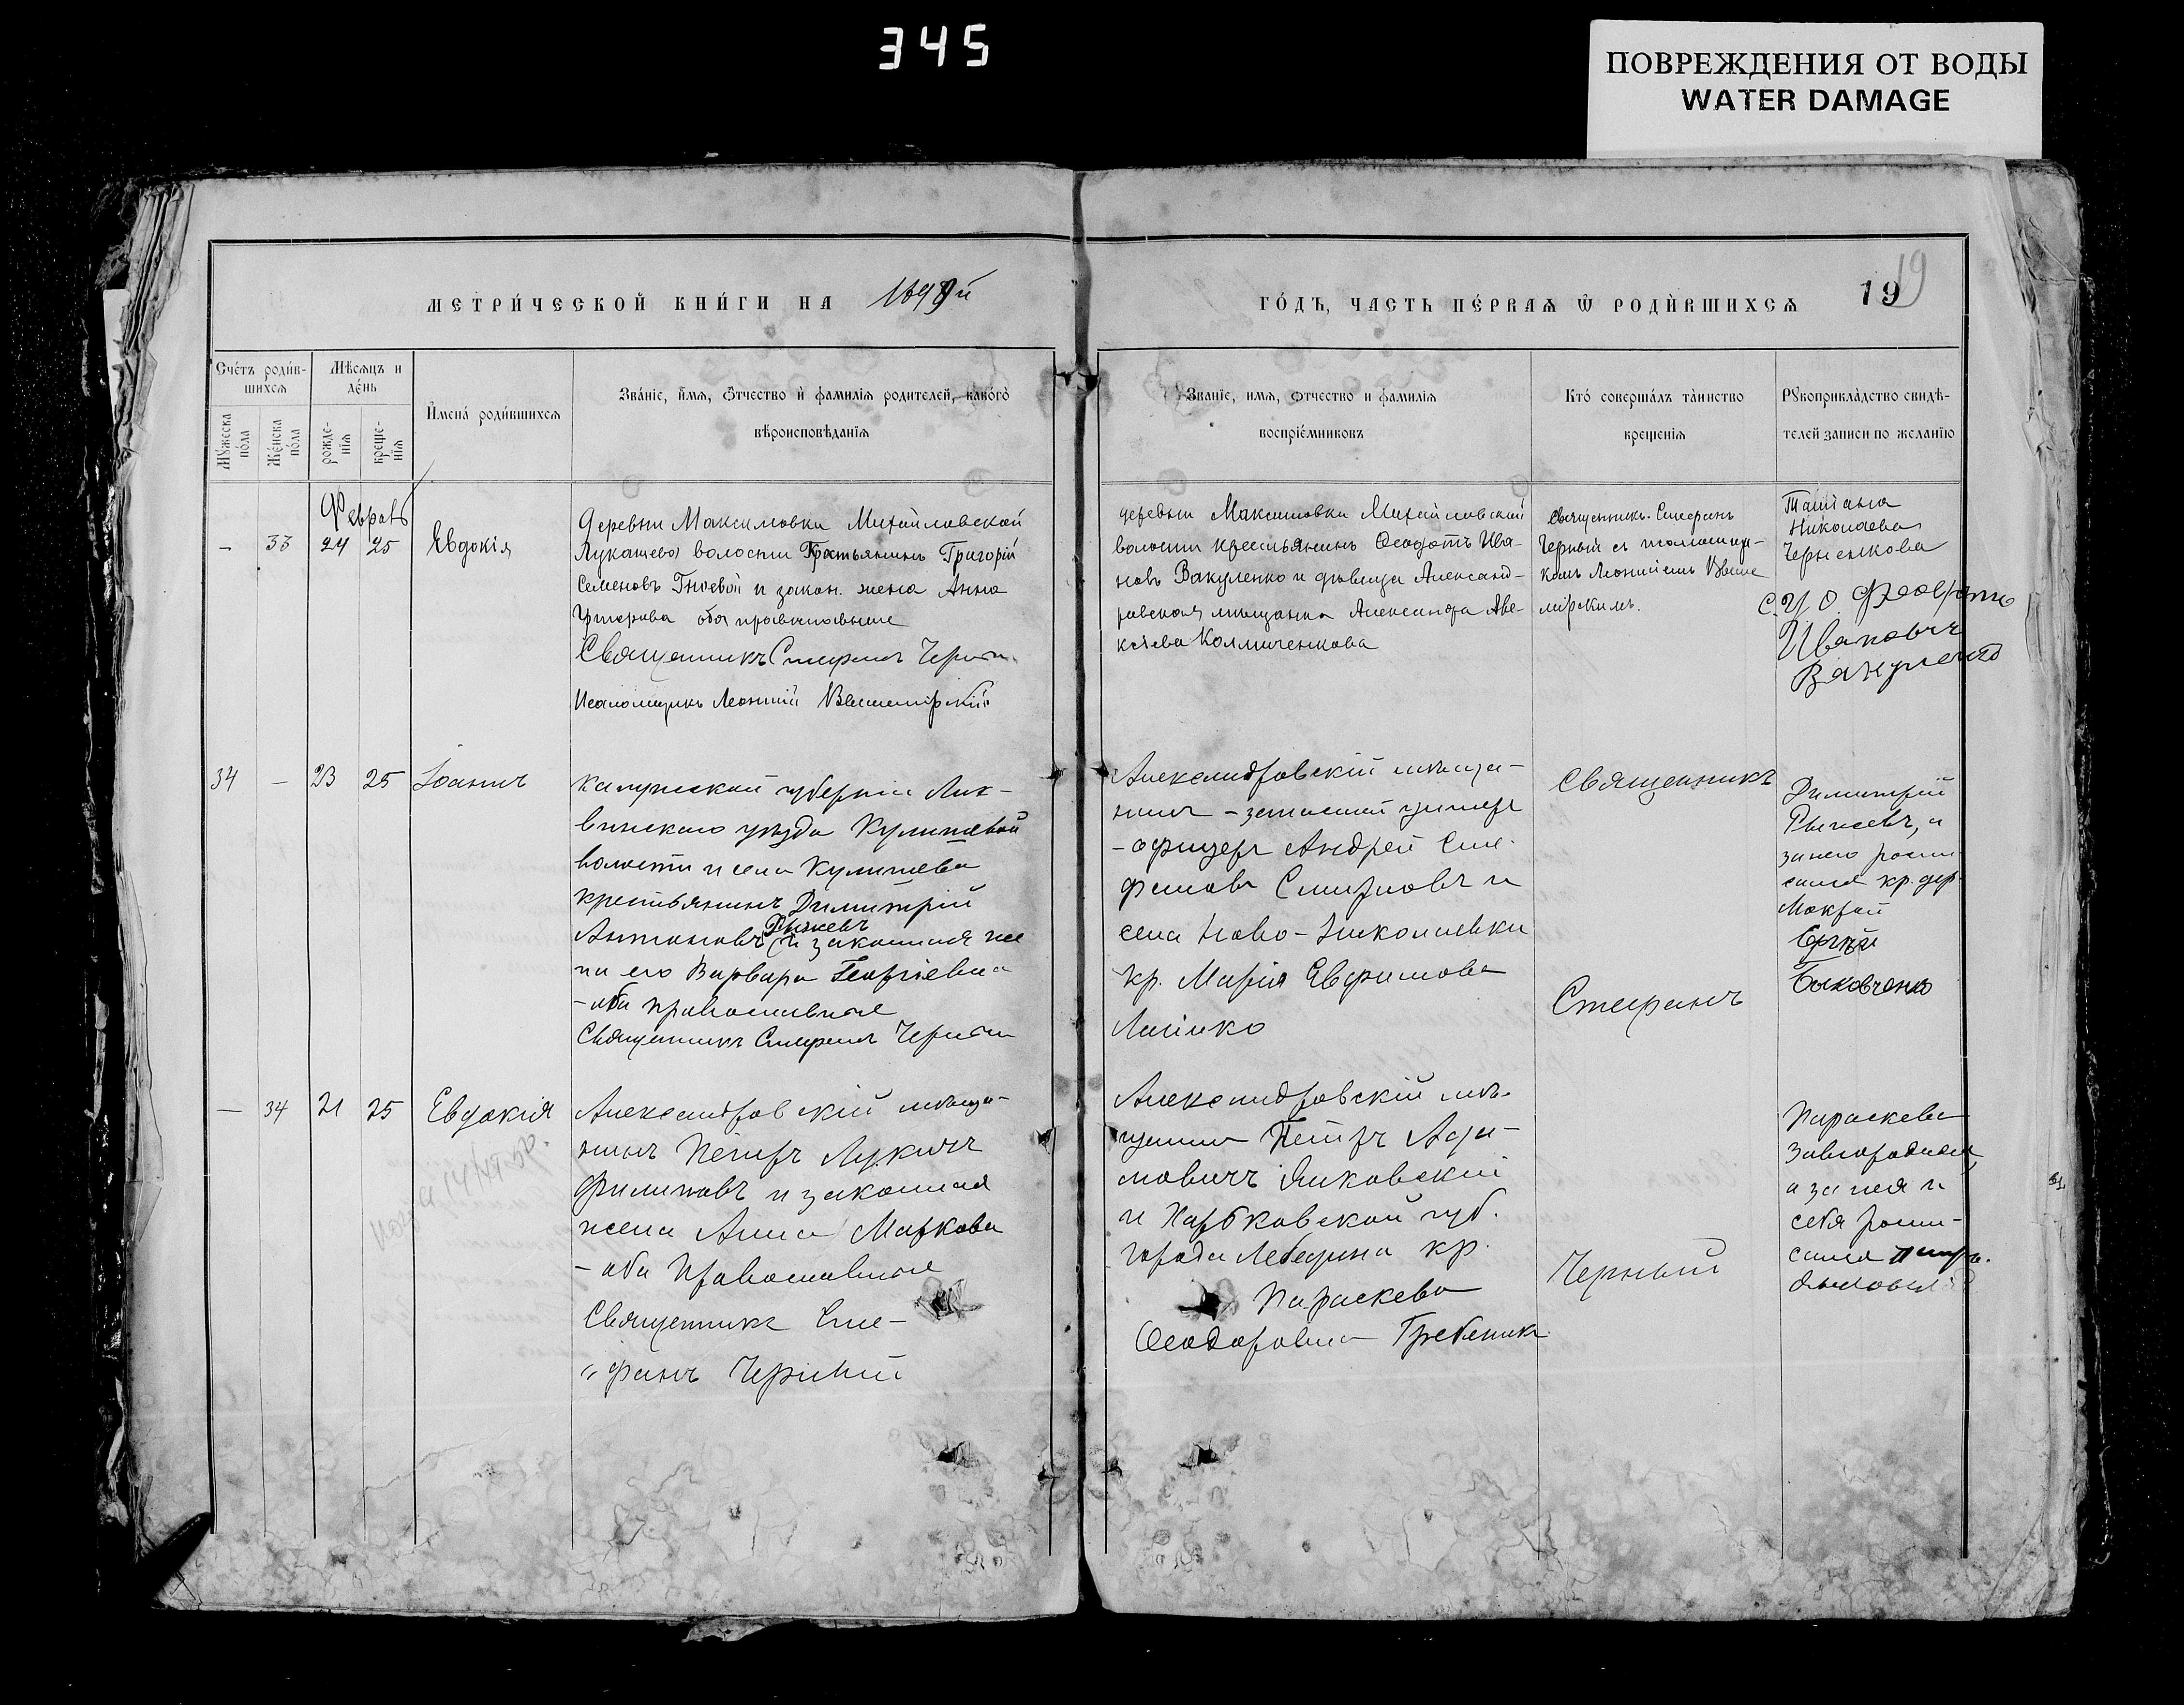 345
ПОВРЕЖДЕНИЯ ОТ ВОДЫ
WATER DAMAGE
МЕТРИ́ЧЕСКОЙ КНИ́ГИ НА 1899й
ГО́ДЪ, ЧАСТЬ ПЕ́РВАѦ Ѿ РОДИ́ВШИХСѦ
19
19
Сче́тъ роди́в-
шихсѧ
Мѣсѧцъ и
де́нь
Мꙋжеска
по́ла
Же́нска
по́ла
рожде-
нїѧ
креще-
нїѧ
Имена́ роди́вшихсѧ
Зва́нїе, и́мѧ, ѻ́тчество и҆ фамилїѧ родителей, како́гѡ
вѣроисповѣданїѧ
Званїе, имѧ, ѻтчество и фамилїѧ
воспрїе́мниковъ
Кто́ соверша́лъ та́инство
крещенїѧ
Рꙋкоприкла́дство свидѣ-
телей записи по желанїю
Февраль
— 33 24 25 Евдокія
деревни Максимовки Михайловской
Лукашево волости Крестьянинъ Григорій
Семеновъ Гноевой и закон. жена Анна
оба православные
Священникъ Стефанъ Черный
Псаломщикъ Леонтій
деревни Максимовки Михайловской
волости крестьянинъ Ѳеодотъ Ива-
новъ Вакуленко и дѣвица Александ-
ровская мѣщанка Александра Аве-
Священникъ Стефанъ
Черный съ псаломщи-
комъ Леонтіемъ
мірскимъ.
Татіана
Николаева
Черненкова
Ивановъ
Вакуленко
34 — 23 25 Іоаннъ
Калужской губерніи Лих-
винскаго уѣзда Кулишевой
волости и села Кулишева
крестьянинъ Димитрій
Рыжевъ
Антоновъ и законная же
на его Варвара Георгіевна
- оба православные
Священникъ Стефанъ Черный
Александровскій мѣща-
нинъ - запасный унтеръ
- офицеръ Андрей Сте-
фановъ Смирновъ и
села Ново-Николаевки
кр. Марія Евфимова
Священникъ
Стефанъ
Черный
Димитрій
Рыжевъ, а
за него роспи-
сался кр. дер.
Мокрой
Сергѣй
Быковченко
— 34 21 25 Евдокія
Александровскій мѣща-
нинъ Петръ Лукичъ
Филиповъ и законная
жена Анна Маркова
- оба Православные
Священникъ Сте-
„ фанъ Черный
Александровскій мѣ-
щанинъ Петръ Ада-
мовичъ
и Харьковской губ.
города Лебедина кр.
Параскева
Ѳеодоровна Гребеник
Параскева
Завгородняя,
а за нея и
себя роспи-
сался Петръ